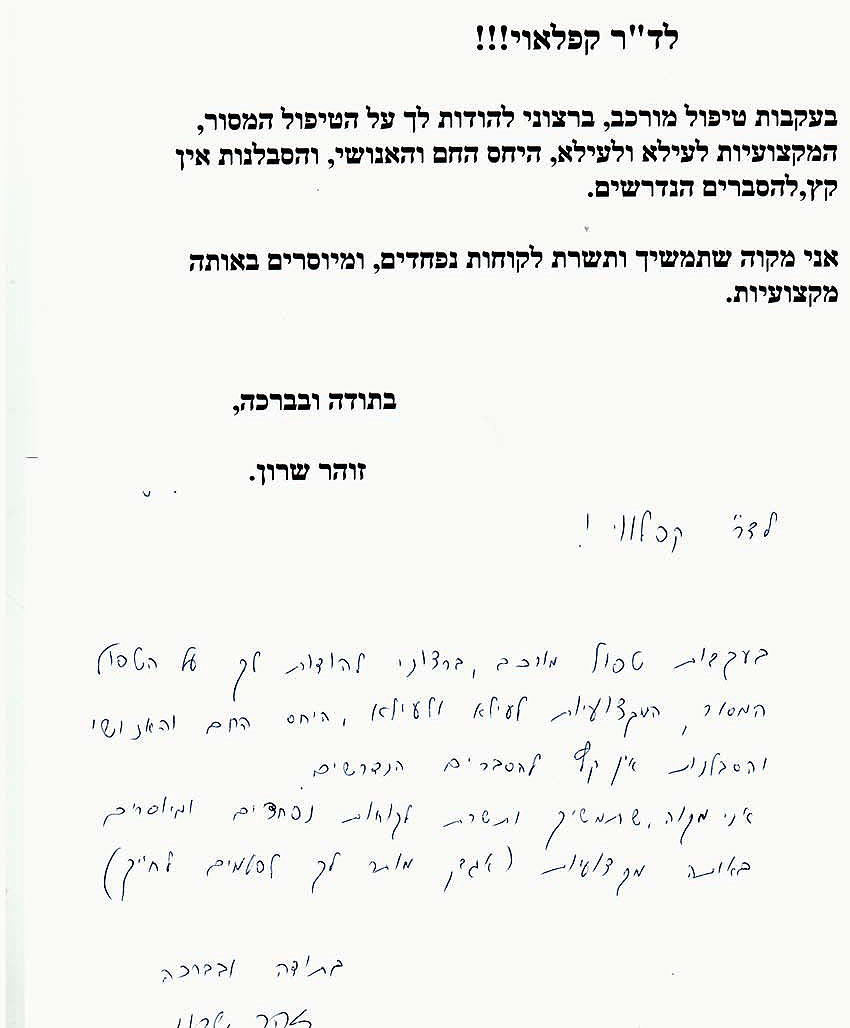 לד"ר קפלאוי!!!
בעקבות טיפול מורכב, ברצוני להודות לך על הטיפול המסור,
המקצועיות לעילא ולעילא, היחס החם והאנושי, והסבלנות אין
קץ,להסברים הנדרשים.
אני מקוה שתמשיך ותשרת לקוחות נפחדים, ומיוסרים באותה
מקצועיות.
בתודה ובברכה,
זוהר שרון.
לדר" קפלווי !
בעקבות טפול מורכב, ברצוני להודות לך על הטפול
המסור, המקצועיות לעילא ולעילא, היחס החם והאנושי
והסבלנות אין קץ להסברים הנדרשים.
אני מקוה, שתמשיך ותשרת לקוחות נפחדים ומיוסרים
באותה מקצועיות (אגב, מותר לך לפעמים לחייך)
בתודה ובברכה
זוהר שרון